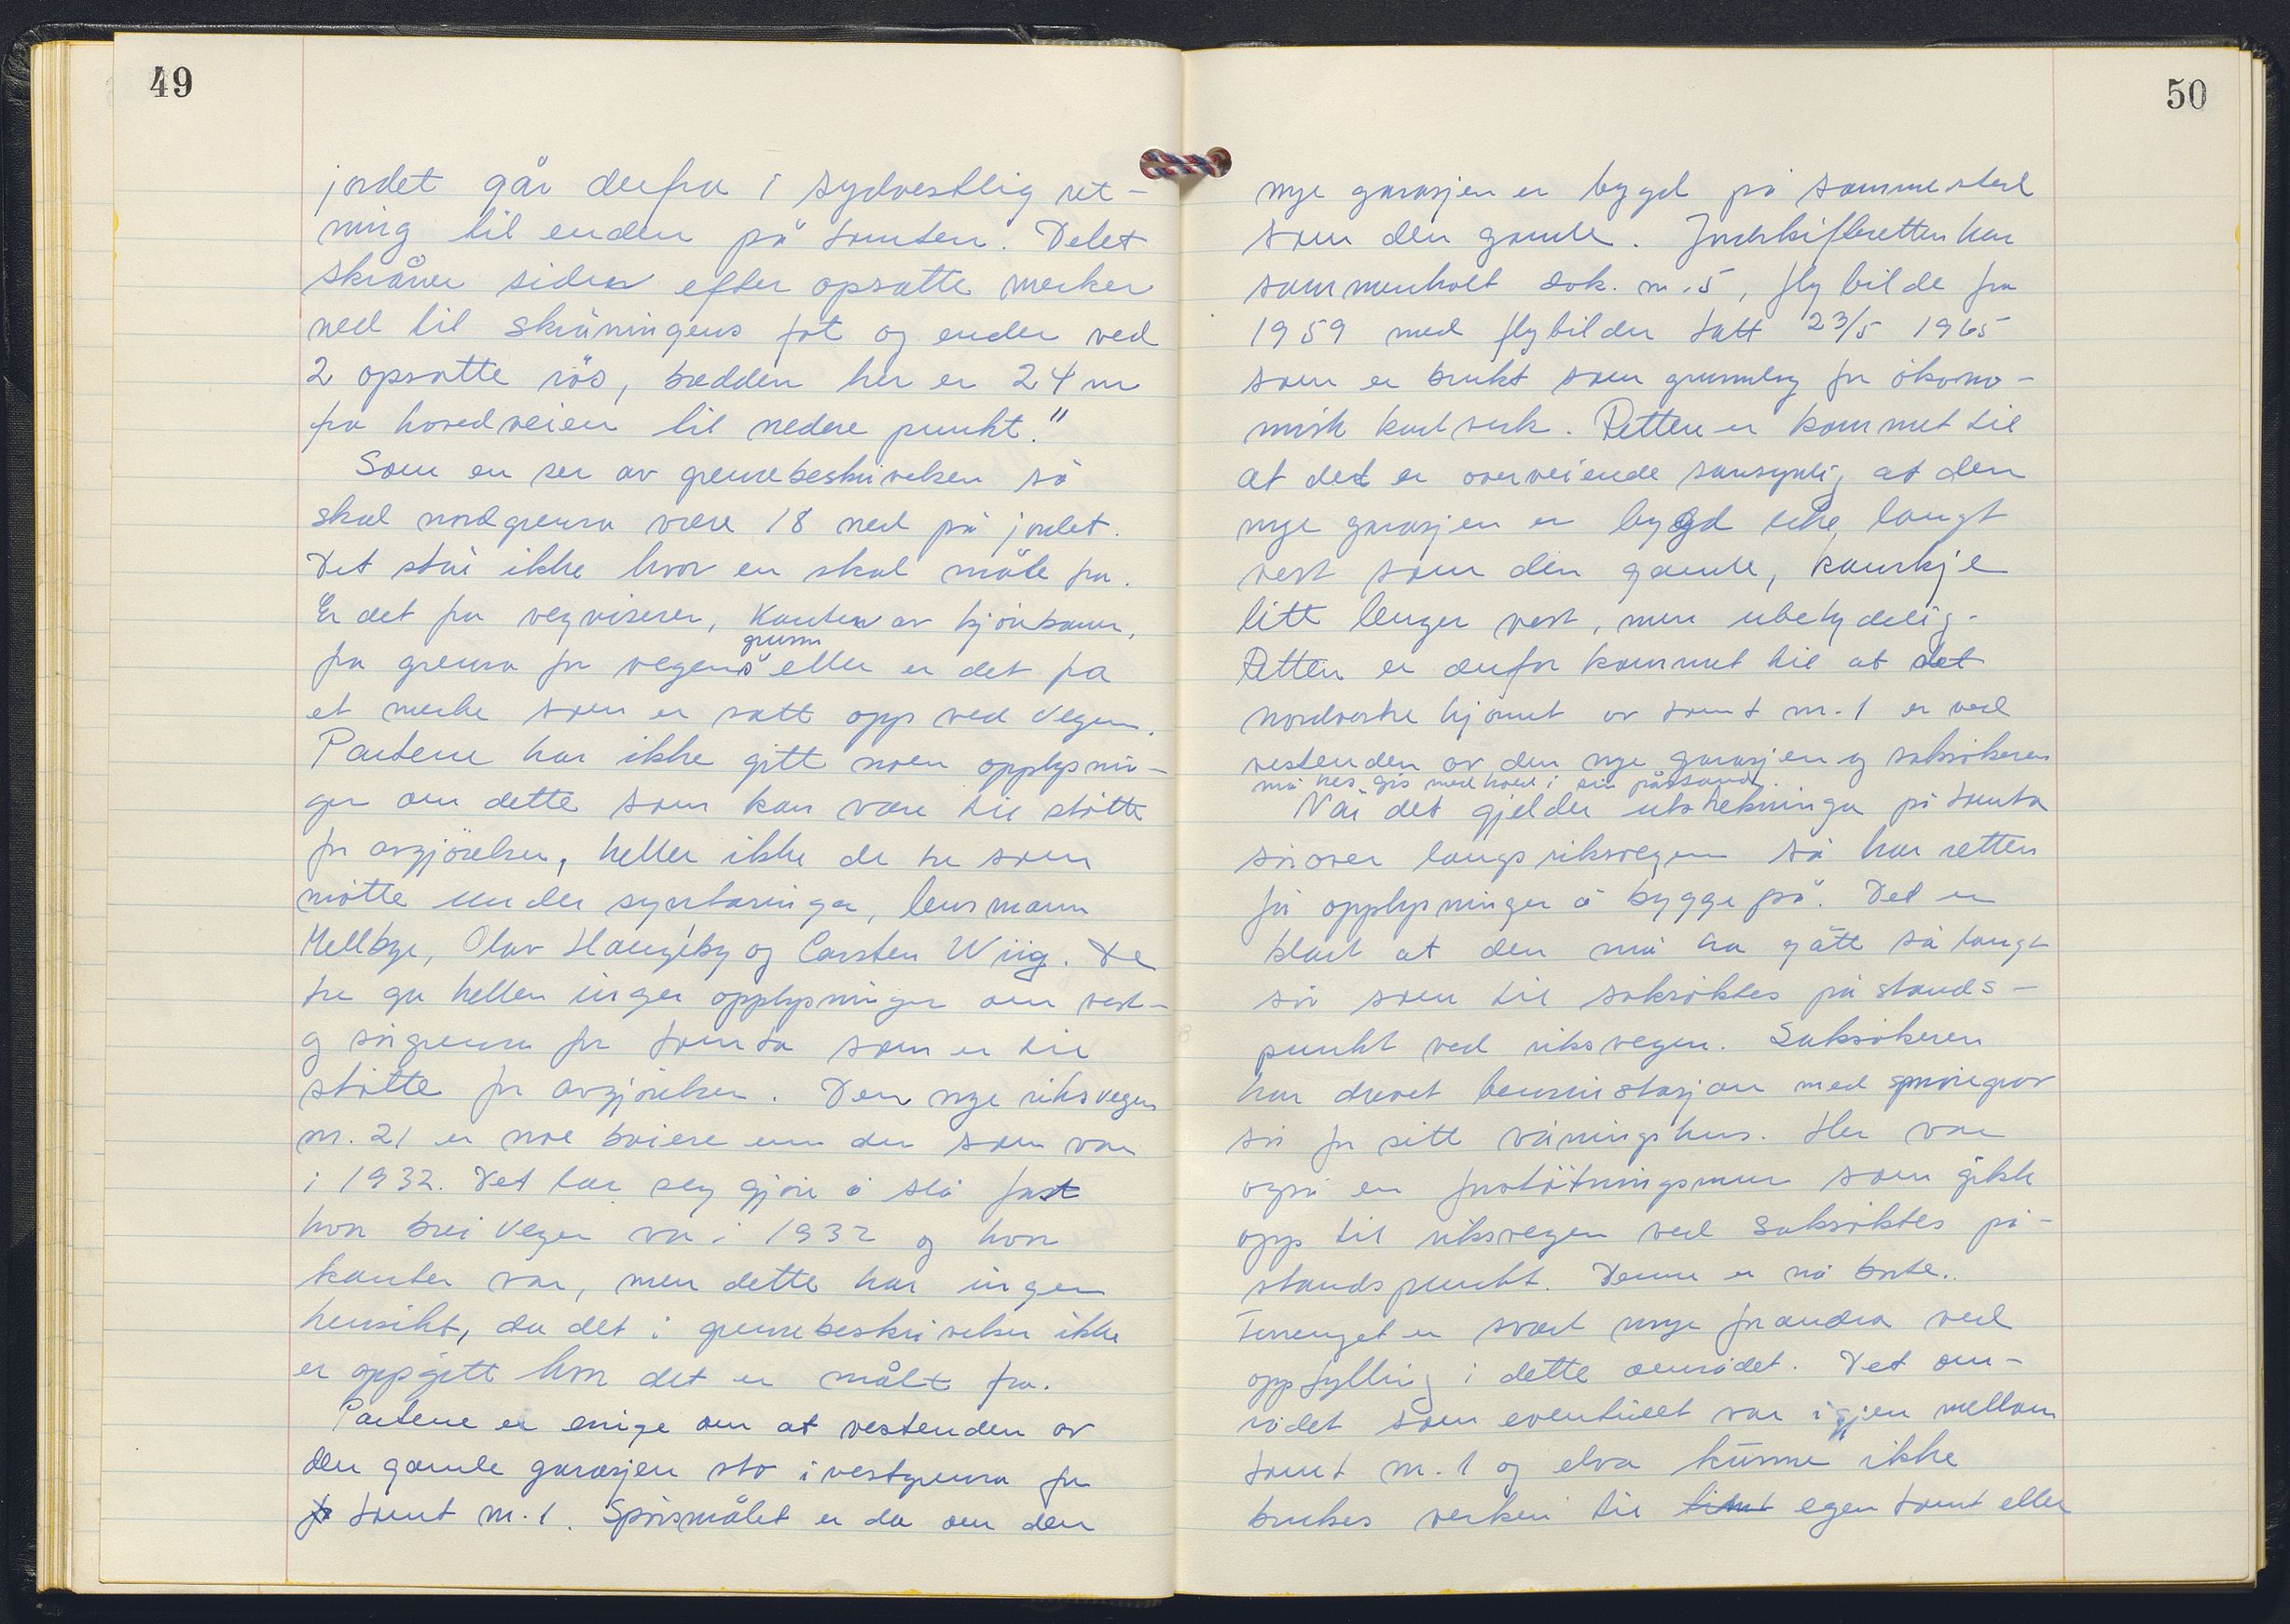 49
jordet går derfra i sydvestlig ret-
ning til enden på tomten. Delet
skråner siden efter opsatte merker
ned til skråningens fot og ender ved
2 opsatte rös, bredden her er 24 m
fra hovedveien til nedere punkt."
Som en ser av grensebeskrivelsen så
skal nordgrensa være 18 ned på jordet.
Det står ikke hvor en skal måle fra.
Er det fra vegviseren, kanten av kjörbanen,
grunn
fra grensa for vegens eller er det fra
et merke som er satt opp ved vegen.
Partene har ikke gitt noen opplysnin-
ger om dette som kan være til stötte
for avgjörelsen, heller ikke de tre som
mötte under synfaringa, lensmann
Mellbye, Olav Haugeby og Carsten Wiig. De
tre ga heller ingen opplysninger om vest-
og sörgrensa for tomta som er til
stötte for avgjörelsen. Den nye riksvegen
nr. 21 er noe breiere enn den som var
i 1932. Det lar seg gjöre å slå fast
hvor brei vegen var i 1932 og hvor
kanten var, men dette har ingen
hensikt, da det i grensebeskrivelsen ikke
er oppgitt hvor det er målt fra.
Partene er enige om at vestenden av
den gamle garasjen sto i vestgrensa for
tomt nr. 1. Spörsmålet er da om den
50
nye garasjen er bygd på samme sted
som den gamle. Jordskifteretten har
sammenholt dok. nr. 5, flybilde fra
1959 med flybilder tatt 23/5 1965
som er brukt som grunnlag for ökono-
misk kartverk. Retten er kommet til
at det er overveiende sansynlig at den
nye garasjen er bygd like langt
vest som den gamle, kanskje
litt lenger vest, men ubetydelig.
Retten er derfor kommet til at det
nordvestre hjörnet av tomt nr. 1 er ved
vestenden av den nye garasjen og saksökeren
må her gis medhold i sin påstand.
Når det gjelder utstrekninga på tomta
sörover langs riksvegen så har retten
få opplysninger å bygge på. Det er
klart at den må ha gått så langt
sör som til saksöktes påstands-
punkt ved riksvegen. Saksökeren
har drevet bensinstasjon med smöregrav
sör for sitt våningshus. Her var
også en forstötningsmur som gikk
opp til riksvegen ved saksöktes på-
standspunkt. Denne er nå borte.
Terrenget er svært mye forandra ved
oppfylling i dette området. Det om-
rådet som eventuelt var igjen mellom
tomt nr. 1 og elva kunne ikke
brukes verken til egen tomt eller